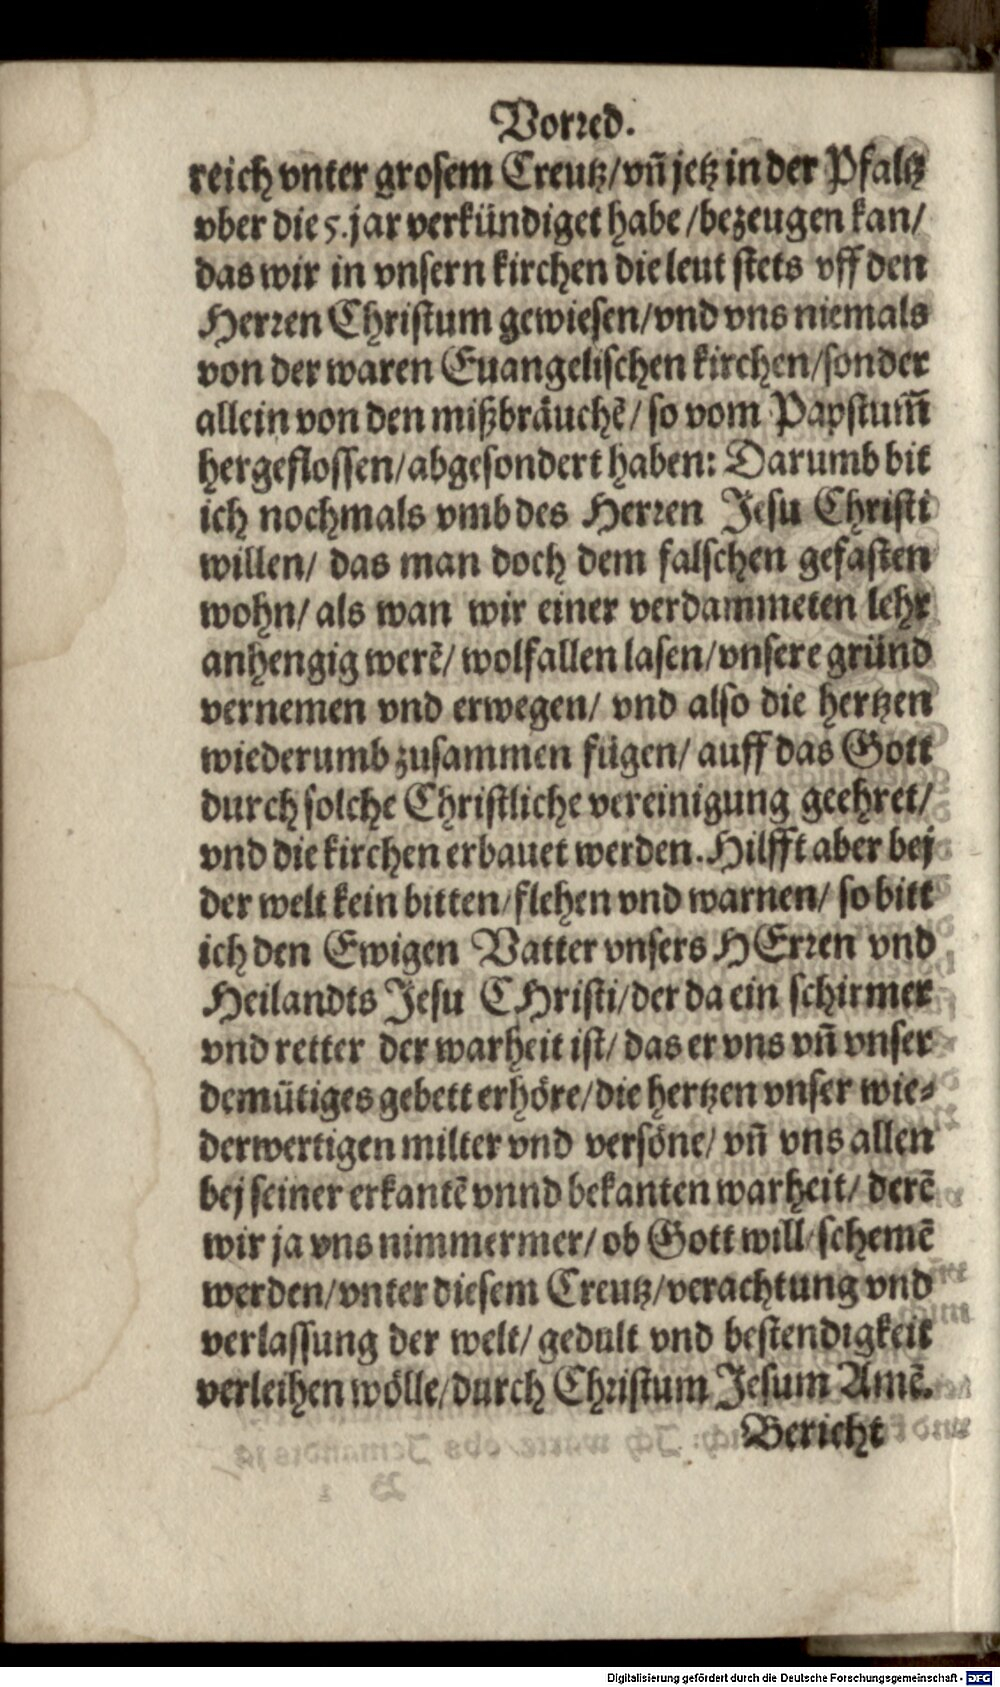 Vorred.
reich vnter grosem Creutz/vñ jetz in der Pfaltz
vber die 5. jar verkündiget habe/bezeugen kan/
das wir in vnsern kirchen die leut stets vff den
Herren Christum gewiesen/vnd vns niemals
von der waren Euangelischen kirchen/sonder
allein von den mißbräuchē/ so vom Papstum̃
hergeflossen/abgesondert haben: Darumb bit
ich nochmals vmb des Herren Jesu Christi
willen/ das man doch dem falschen gefasten
wohn/ als wan wir einer verdammeten lehr
anhengig werē/ wolfallen lasen/vnsere gründ
vernemen vnd erwegen/ vnd also die hertzen
wiederumb zusammen fügen/ auff das Gott
durch solche Christliche vereinigung geehret/
vnd die kirchen erbauet werden. Hilfft aber bej
der welt kein bitten/flehen vnd warnen/ so bitt
ich den Ewigen Vatter vnsers HErren vnd
Heilandts Jesu CHristi/der da ein schirmer
vnd retter der warheit ist/ das er vns vñ vnser
demütiges gebett erhöre/die hertzen vnser wie-
derwertigen milter vnd versöne/ vñ vns allen
bej seiner erkantē vnnd bekanten warheit/ derē
wir ja vns nimmermer/ ob Gott will/schemē
werden/vnter diesem Creutz/verachtung vnd
verlassung der welt/ gedult vnd bestendigkeit
verleihen wölle/durch Christum Jesum Amē.
Bericht
Digitalisierung gefördert durch die Deutsche Forschungsgemeinschaft - DFG